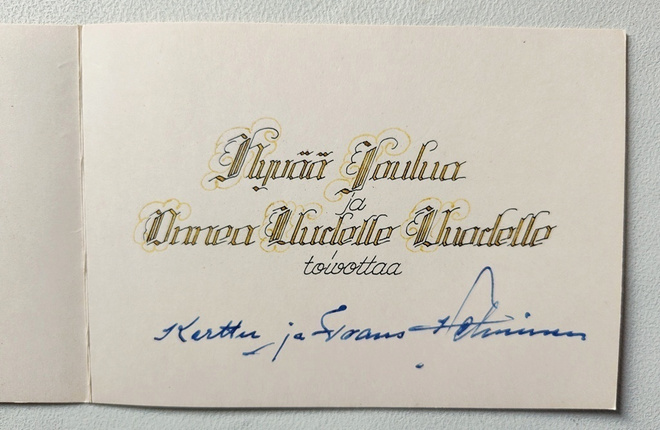 Hyvää Joulua
ja
Onnea Uudelle Vuodelle
toivottaa
Kerttu ja